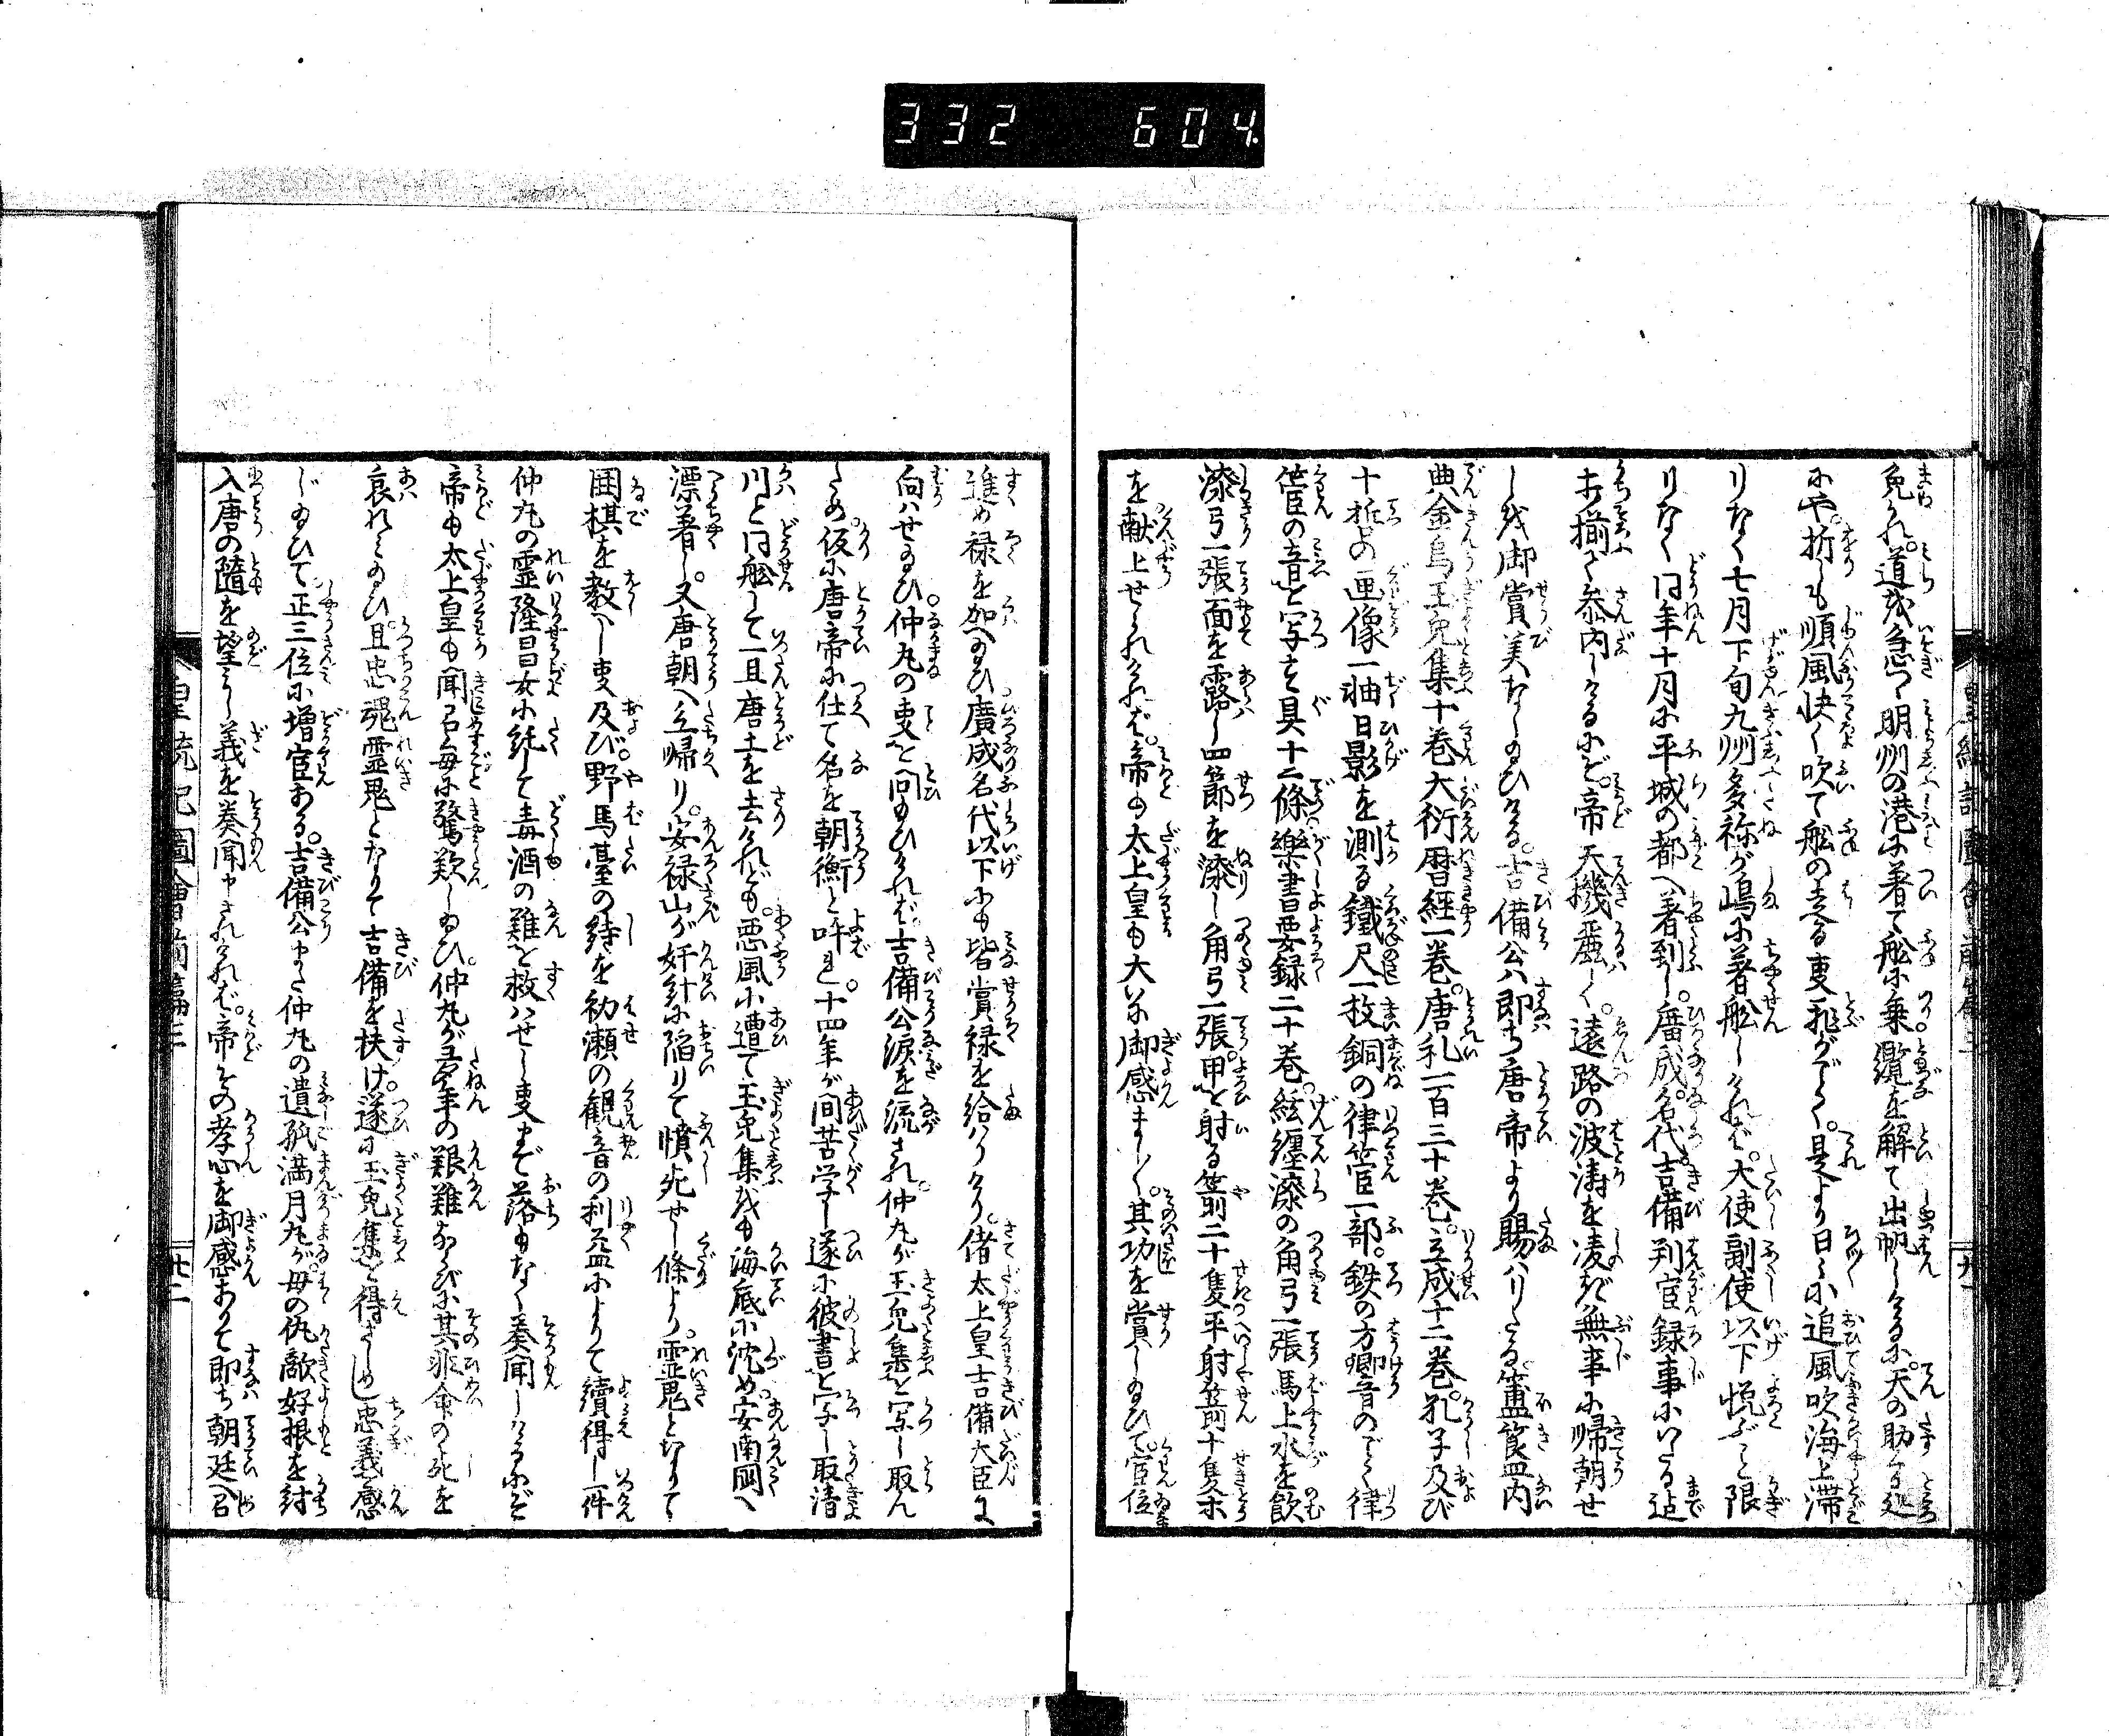 332 604.
免れ。道を急ぎ明州の港に著て船に乗。纜を解て出帆しけるに。天の助くる処
にや。折しも順風快く吹て船の走る事飛がごとく。是より日々に追風吹海上滞
りなく七月下旬九州多祢が嶋に著船しければ。大使副使以下悦ぶこと限
りなく同年十月に平城の都へ著到し。廣成。名代。吉備。判官録事にいたる迠
打揃て参内しけるにぞ。帝天機麗しく。遠路の波涛を凌ぎ無事に帰朝せ
しを御賞美なし給ひける。吉備公ハ即ち唐帝より賜ハりたる。簠簋内
典金烏玉兎集十巻大衍暦経一巻。唐礼一百三十巻。立成十二巻。孔子及び
十哲の画像一軸日影を測る鐵尺一枚銅の律管一部。鉄の方響音のごとく律
管の音を写す具十二條樂書要録二十巻。絃纏漆の角弓一張馬上水を飲
漆弓一張面を露し四節を漆し角弓一張。甲を射る箭二十隻平射箭十隻ホ
を献上せられければ。帝も太上皇も大いに御感まし〳〵。其功を賞し給ひて。官位
進め禄を加へ給ひ廣成名代以下にも皆賞禄を給ハりけり。偖太上皇吉備大臣に
向ハせ給ひ。仲丸の事を問給ひければ。吉備公涙を流され。仲丸が玉兎集を写し取ん
ため。仮に唐帝に仕て名を朝衡と呼れ。十四年が間苦学し遂に彼書を写し取清
川と同船して一旦唐土を去けれども。悪風に遭て玉兎集をも海底に沈め。安南国へ
漂著し。又唐朝へ立帰り。安禄山が奸計に陥りて憤死せし條より。霊鬼となりて
囲棋を教へし事及び。野馬臺の詩を初瀬の観音の利益によりて續得し一件
仲丸の霊隆昌女に託して毒酒の難を救ハせし事まで落もなく奏聞しけるにぞ
帝も太上皇も聞召毎に驚歎し給ひ。仲丸が多年の艱難ならびに其非命の死を
哀れミ給ひ。且忠魂霊鬼となりて吉備を扶け。遂に玉兎集を得さしめし忠義を感
じ給ひて。正三位に増官ある。吉備公申さく仲丸の遺孤満月丸が。母の仇敵好根を討
入唐の隨を望ミし義を奏聞申されければ。帝その孝心を御感ありて即ち朝廷へ召
皇統記圖會前編三
廿二